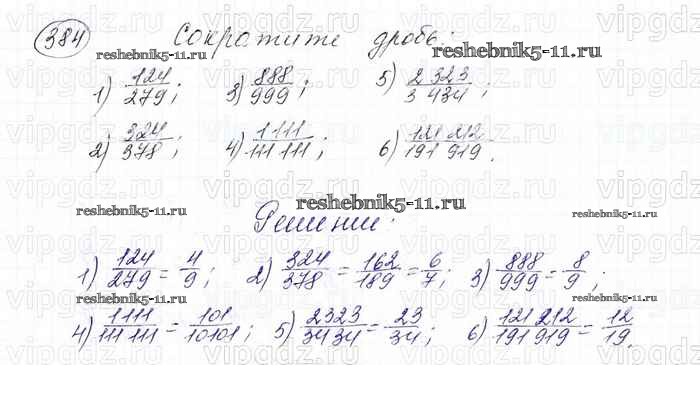 384 Сократите дробь:
reshebnik5-11.ru reshebnik5-11.ru
1) 124/279; 3) 888/999; 5) 2 323/3 434;
2) 324/378; 4) 1 111/111 111; 6) 121 212/191 919.
reshebnik5-11.ru reshebnik5-11.ru reshebnik5-11.ru
Решение:
1) 124/279 = 4/9; 2) 324/378 = 162/189 = 6/7; 3) 888/999 = 8/9;
reshebnik5-11.ru reshebnik5-11.ru
4) 1 111/111 111 = 101/10101; 5) 2323/3434 = 23/34; 6) 121 212/191 919 = 12/19.
vipgdz.ru vipgdz.ru vipgdz.ru vipgdz.ru